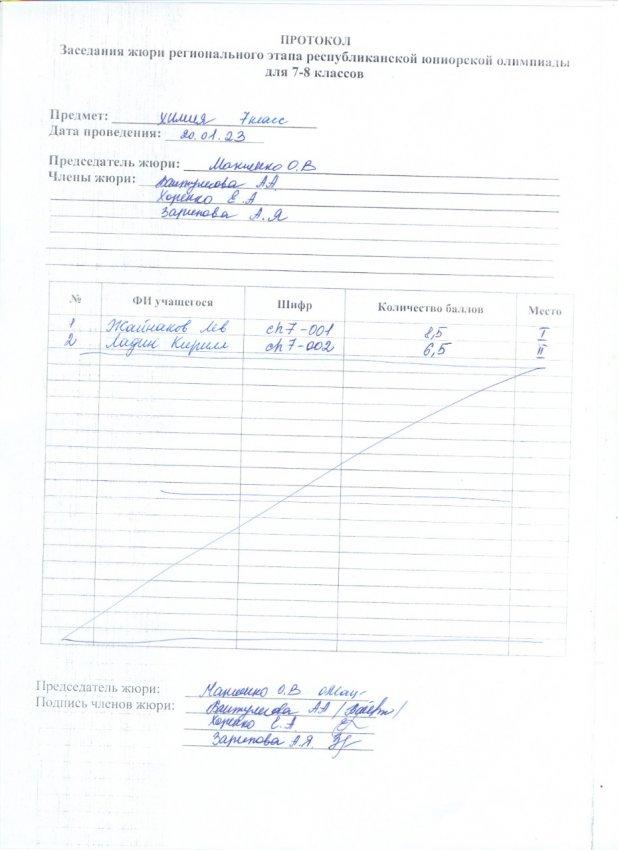 ПРОТОКОЛ
Заседания жюри регионального этапа республиканской юниорской олимпиады
для 7-8 классов
Предмет: химия 7класс
Дата проведения: 20.01.23
Председатель жюри: О.В
Члены жюри: А А
Хоренко Е.А
Зарипова А.Я
№ ФИ учащегося Шифр Количество баллов Место
1 Жайнаков Лев ch7-001 8,5 I
2 Ладин Кирилл ch7-002 6,5 II
Председатель жюри: О.В
Подпись членов жюри: А А
Хоренко Е.А
Зарипова А.Я.